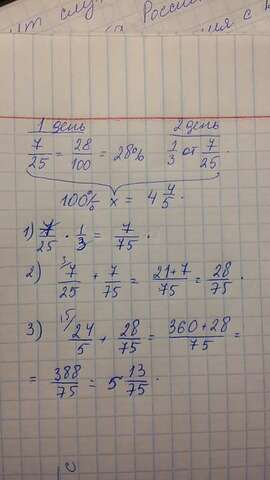 ит слу
Росси
1 день 2 день
7/25 = 28/100 = 28% 1/3 от 7/25.
100% x = 4 4/5.
1) 7/25 · 1/3 = 7/75.
2) 3/ 7/25 + 7/75 = 21+7/75 = 28/75.
3) 15/ 24/5 + 28/75 = 360+28/75 =
= 388/75 = 5 13/75.